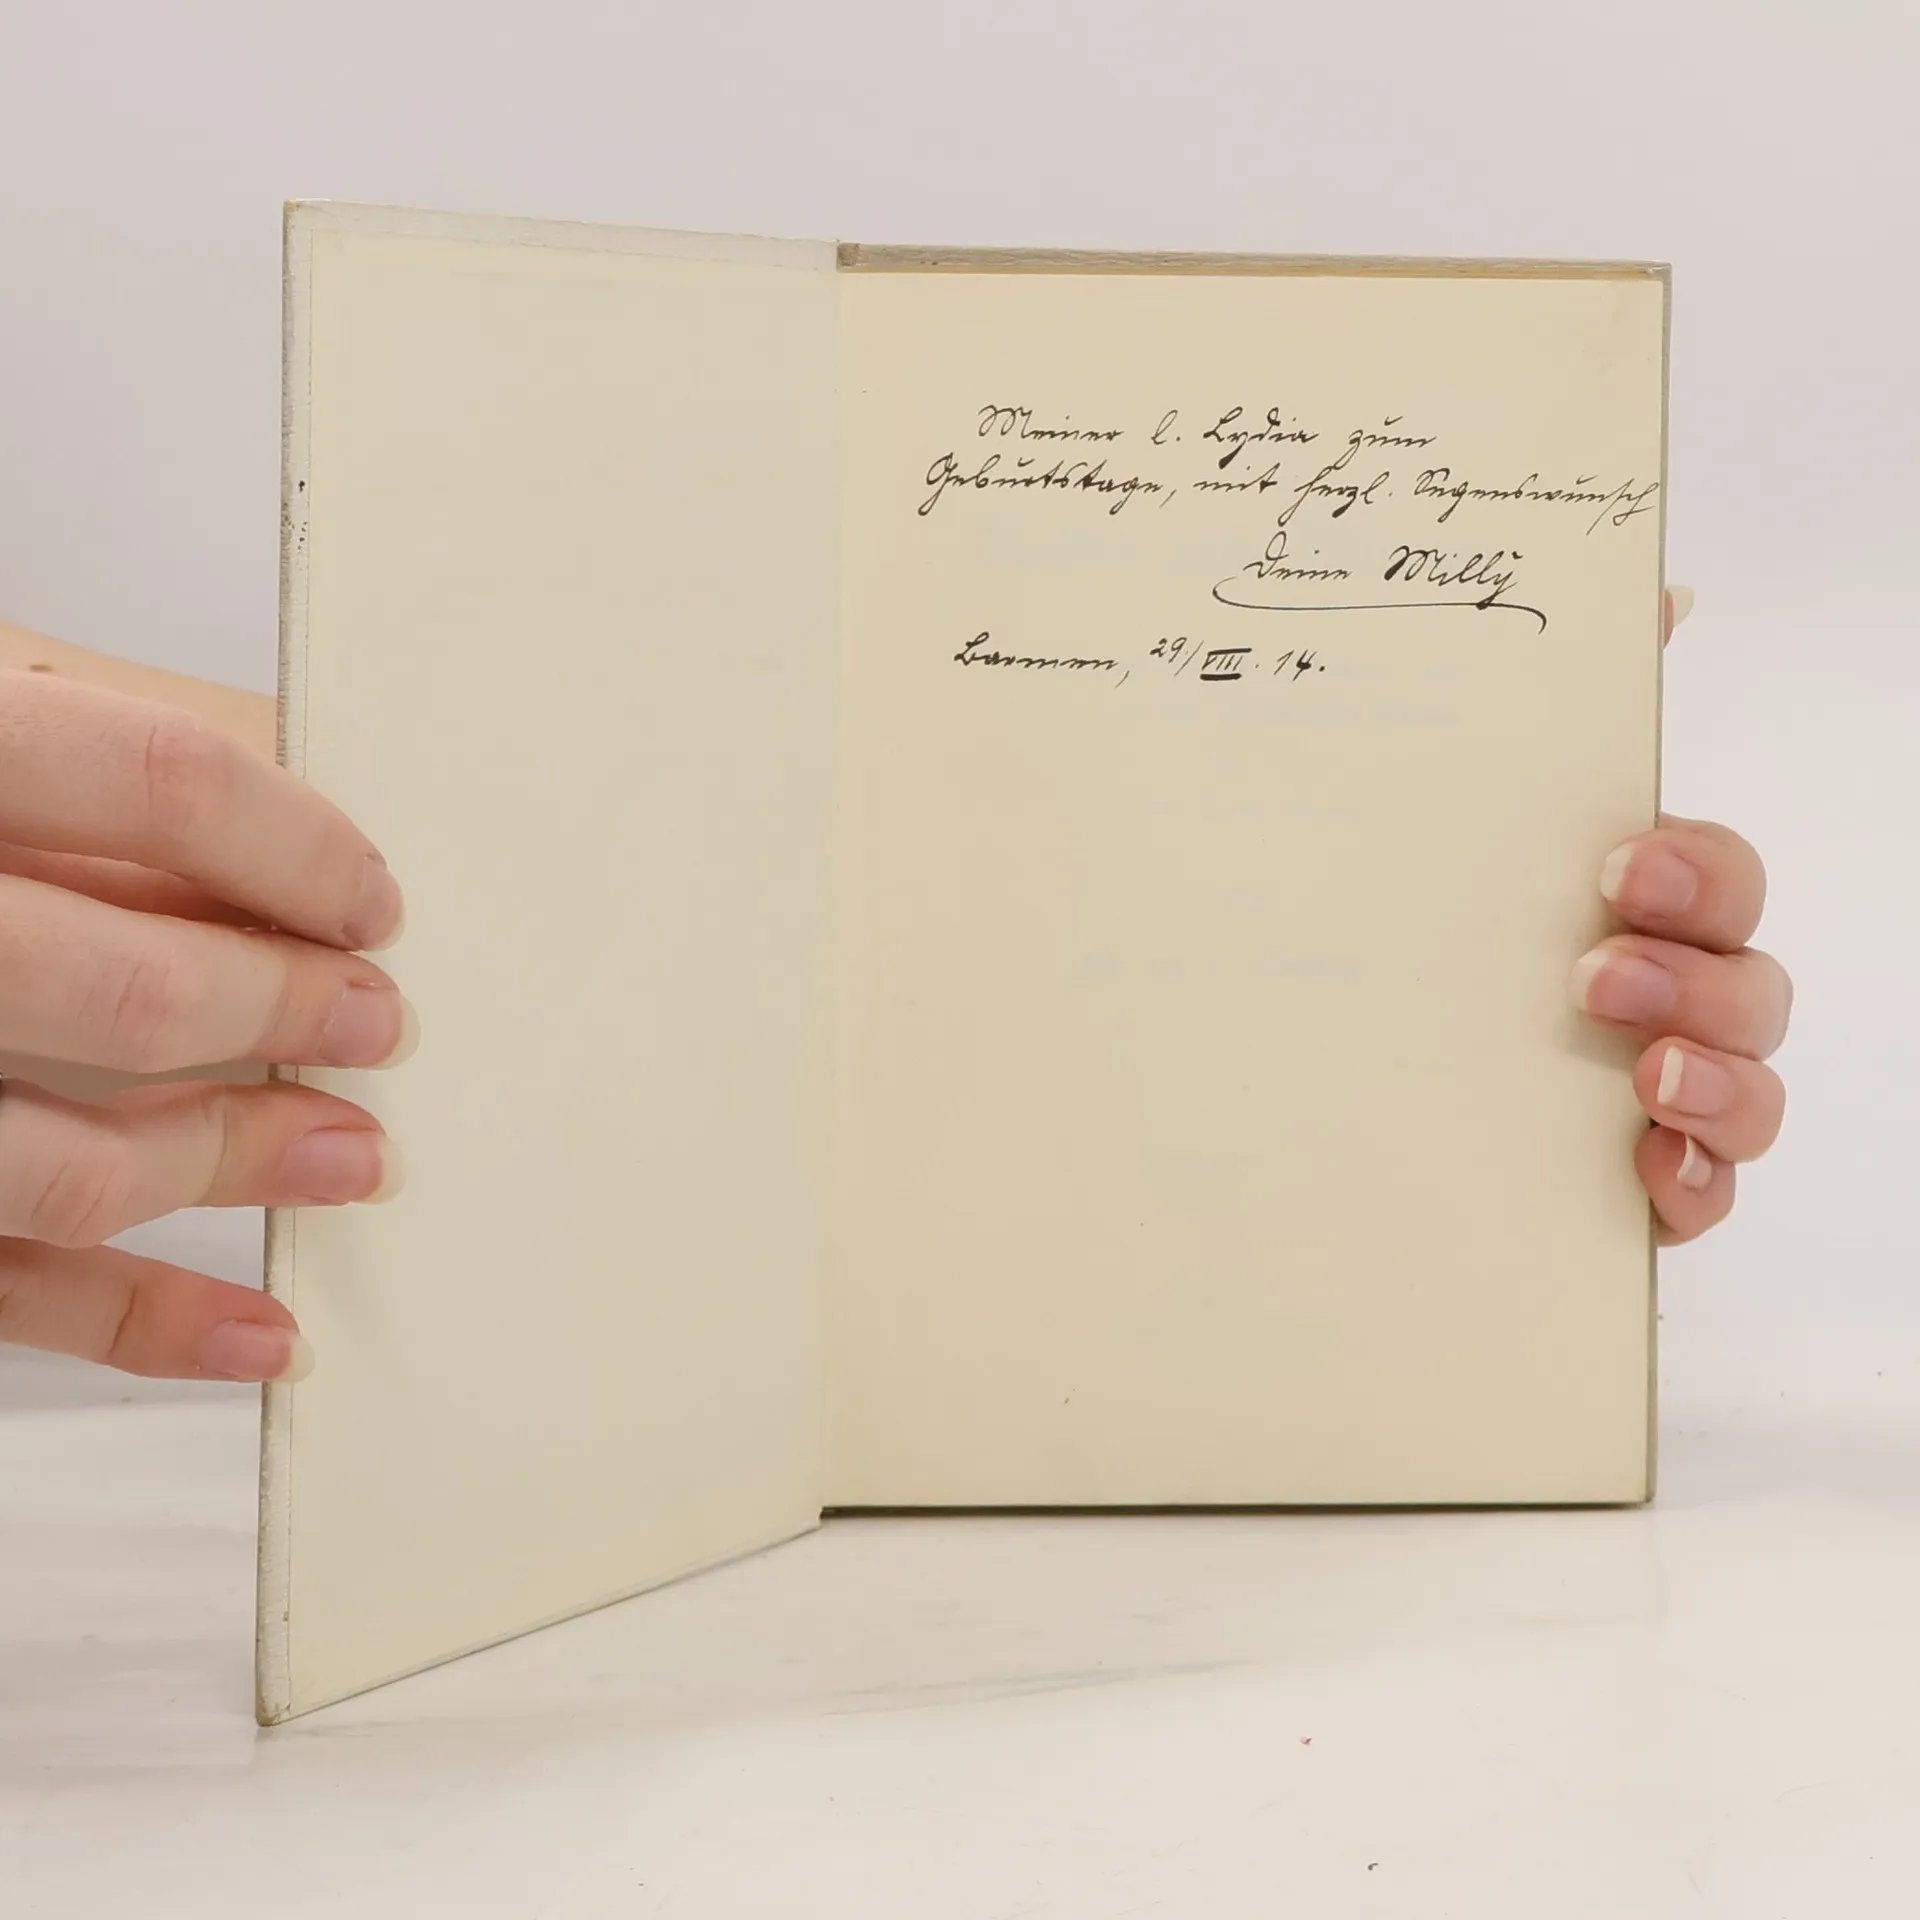 Meiner l. Lydia zum
Geburtstage, mit herzl. Segenswunsch
Deine Milly
Barmen, 29./VIII. 14.